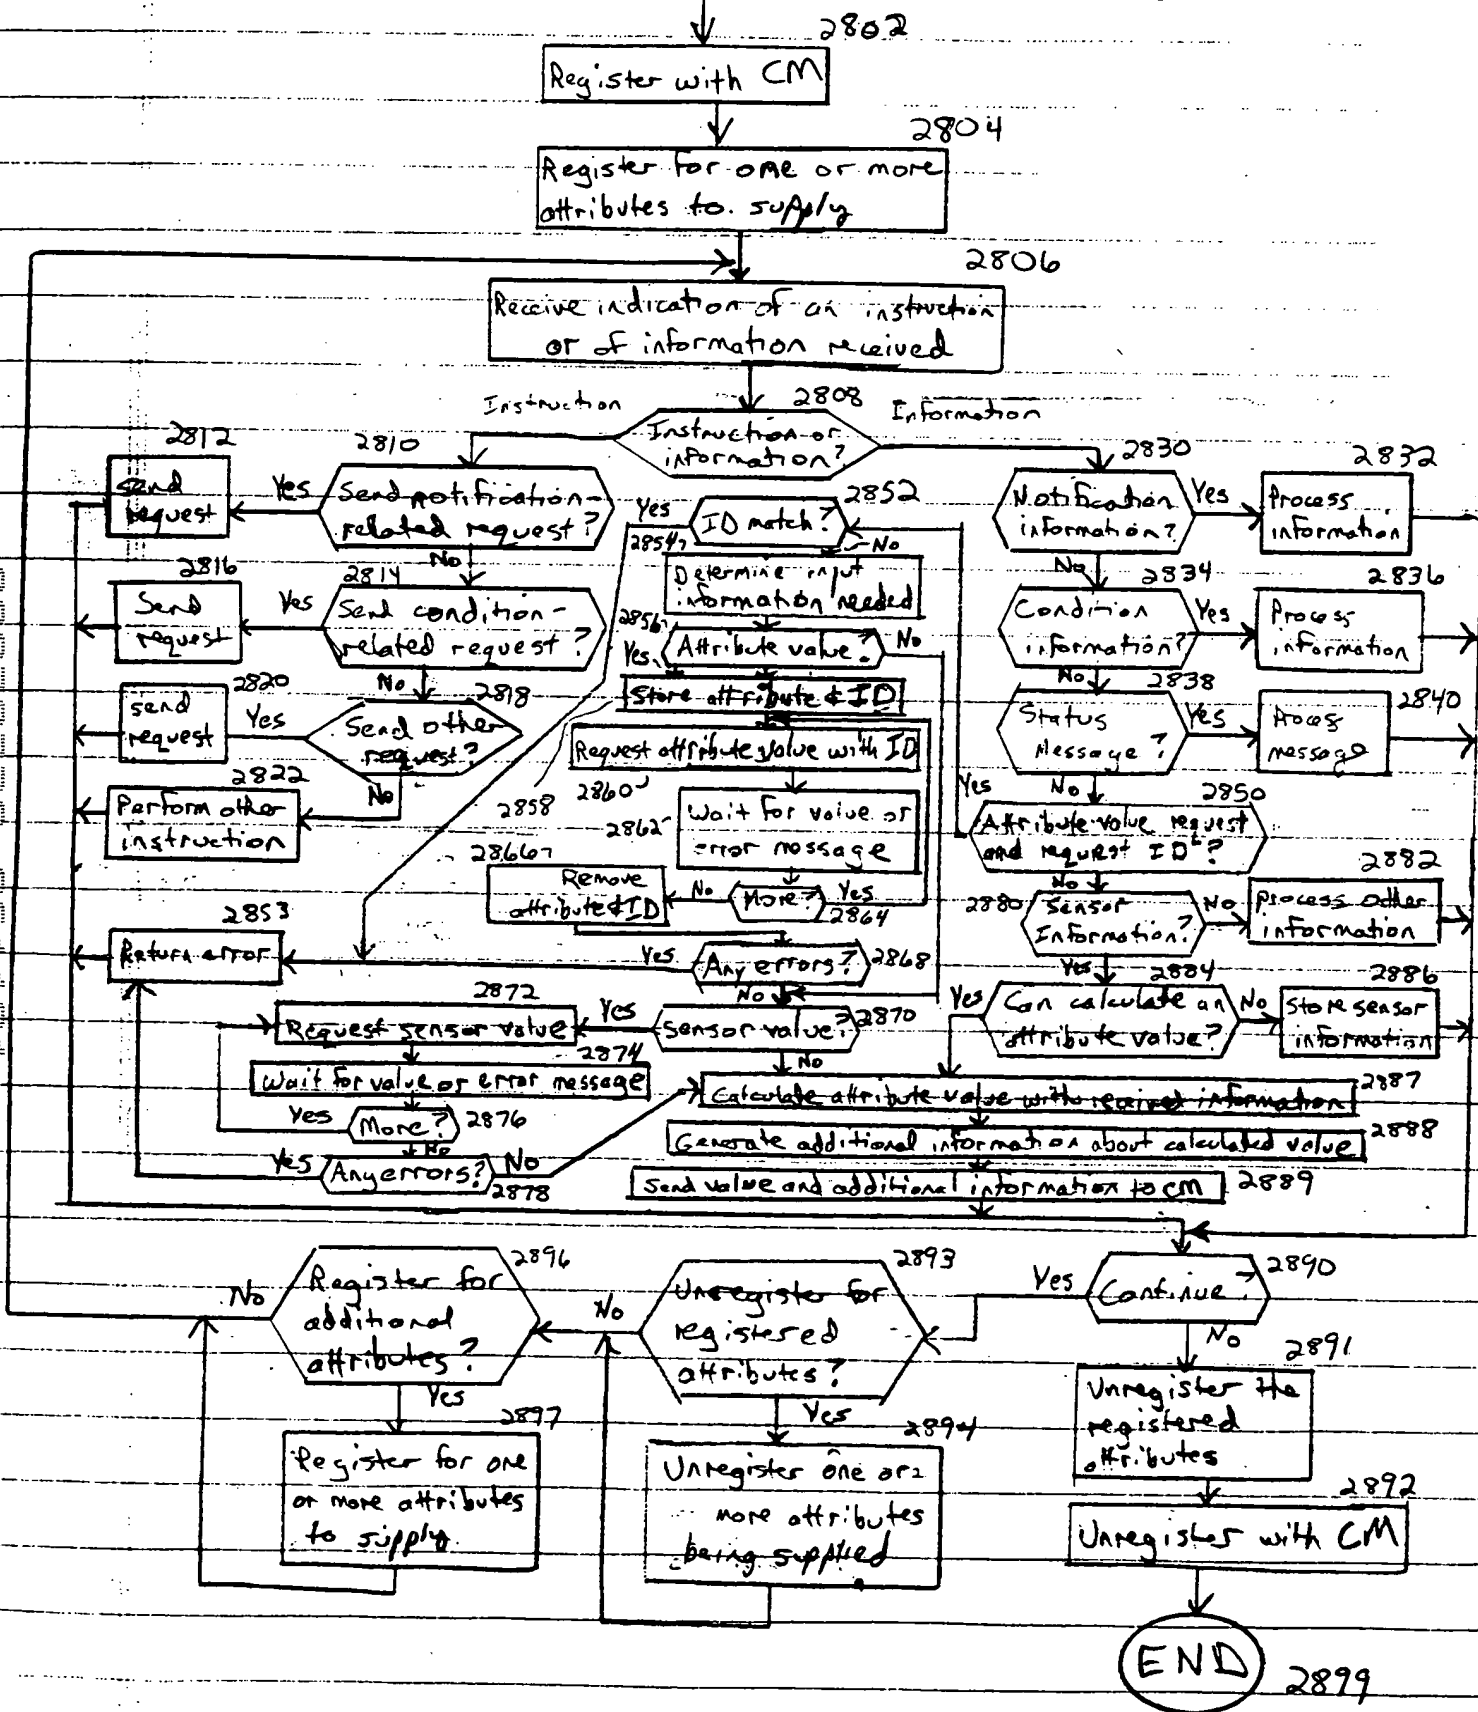 2802
Register with CM
2804
Register for one or more
attributes to supply
2806
Receive indication of an instruction
or of information received
2808
Instruction
Information
Instruction or
information?
2812
Send
request
2810
Yes
Send notification-
related request?
No
2816
Send
request
2814
Yes
Send condition-
related request?
No
2820
Send
request
2818
Yes
Send other
request?
No
2822
Perform other
instruction
2852
Yes
ID match?
No
2854
Determine input
information needed
2856
Attribute value?
No
Yes
Store attribute & ID
2858
Request attribute value with ID
2860
Wait for value or
error message
2862
2866
Remove
attribute & ID
No
More?
Yes
2864
2853
Return error
Yes
Any errors?
2868
No
2872
Request sensor value
Yes
Sensor value?
2870
No
2874
Wait for value or error message
Yes
More?
2876
No
Yes
Any errors?
No
2878
2830
Notification
information?
Yes
2832
Process
information
No
2834
Condition
information?
Yes
2836
Process
information
No
2838
Status
Message?
Yes
2840
Process
message
No
2850
Yes
Attribute value request
and request ID?
No
2880
Sensor
Information?
No
2882
Process other
information
Yes
2884
Yes
Can calculate an
attribute value?
No
2886
Store sensor
information
2887
Calculate attribute value with received information
2888
Generate additional information about calculated value
Send value and additional information to CM
2889
2890
Yes
Continue?
No
2891
Unregister the
registered
attributes
2892
Unregister with CM
END
2899
2893
Unregister for
registered
attributes?
No
Yes
2894
Unregister one or
more attributes
being supplied
2896
Register for
additional
attributes?
No
Yes
2897
Register for one
or more attributes
to supply